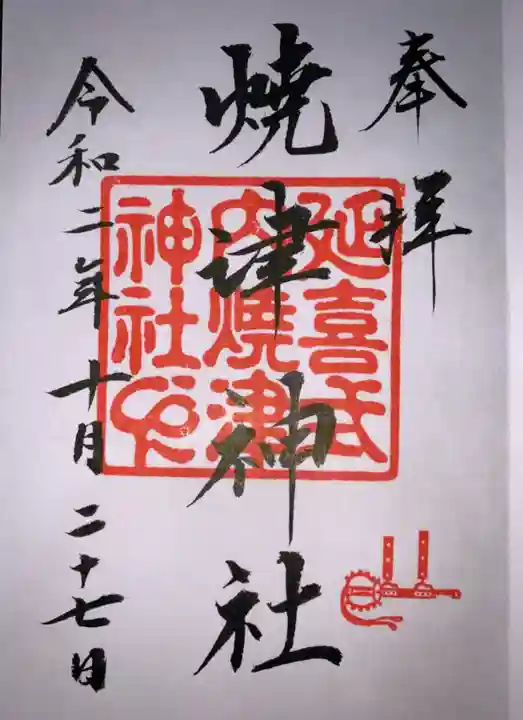 奉拝
焼津神社
延喜式
内焼津
神社印
令和二年十月二十七日